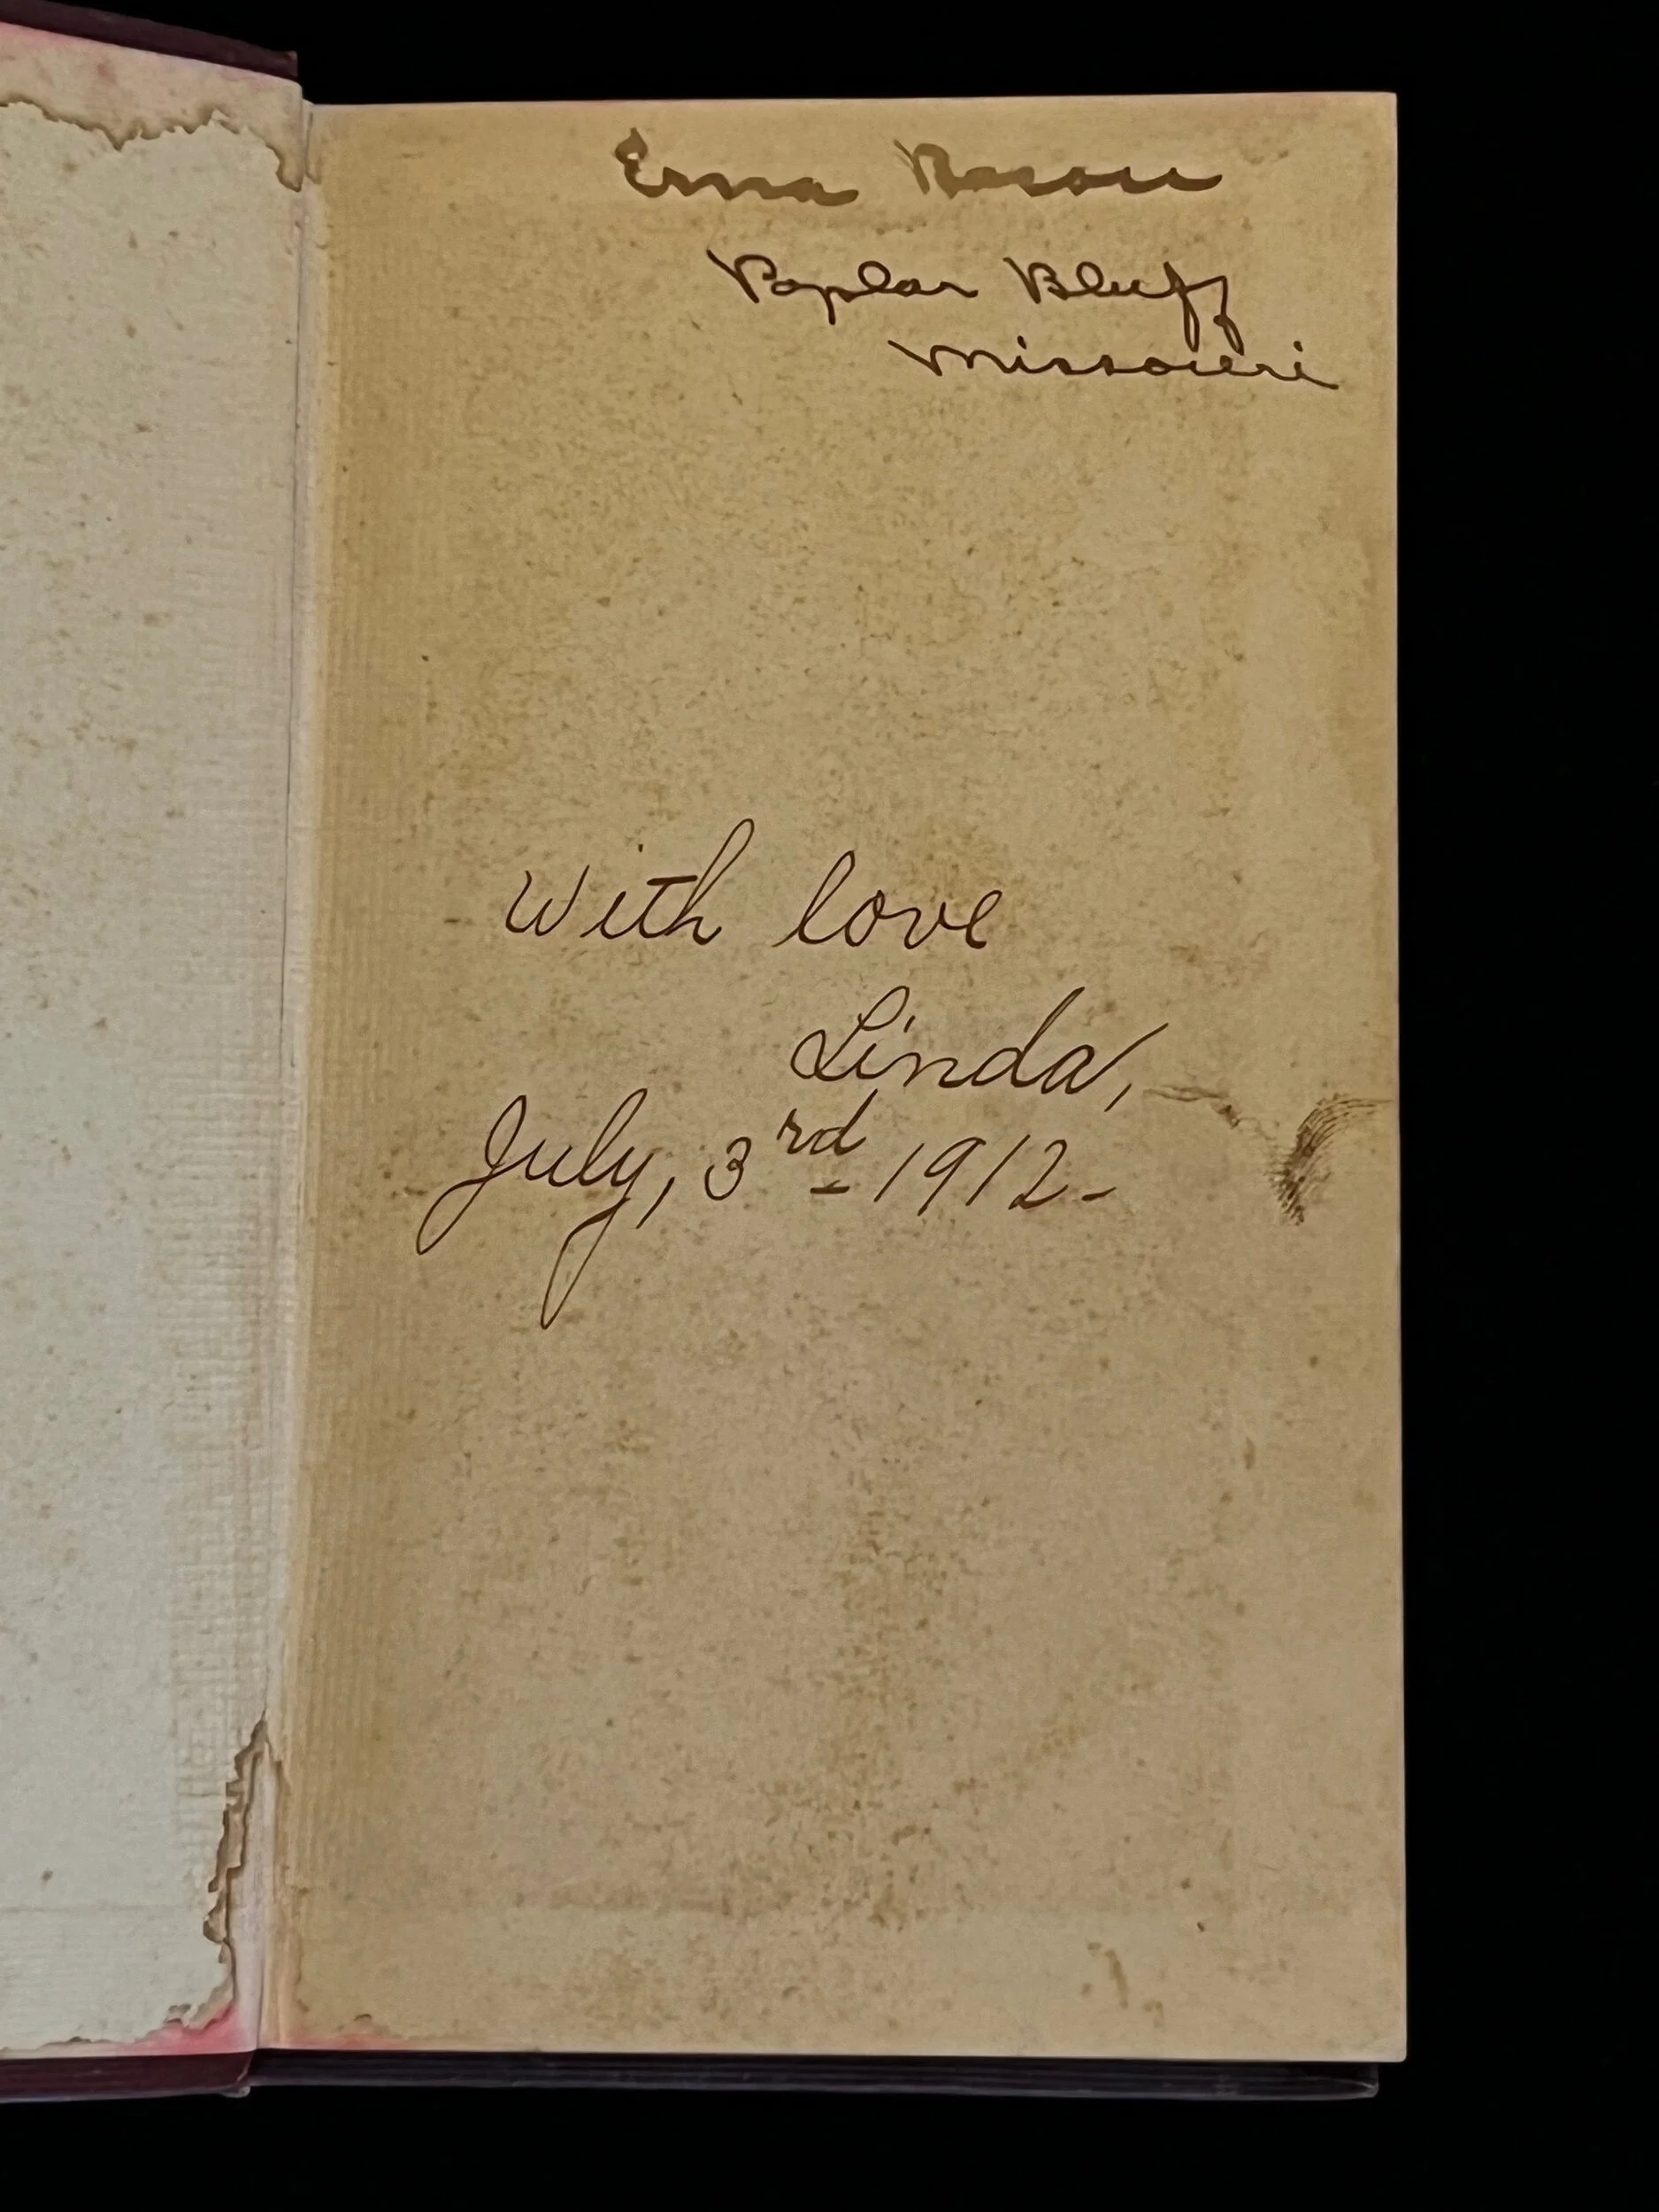 Erna
Poplar Bluff
Missouri
With love
Linda,
July, 3rd 1912-